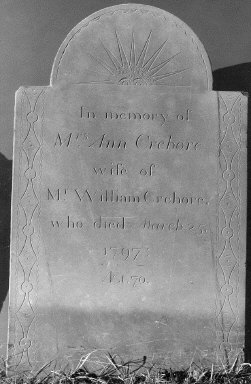 In memory of
Mrs. Ann Crehore
wife of
Mr. William Crehore,
who died March 25,
1797
Æt. 70.